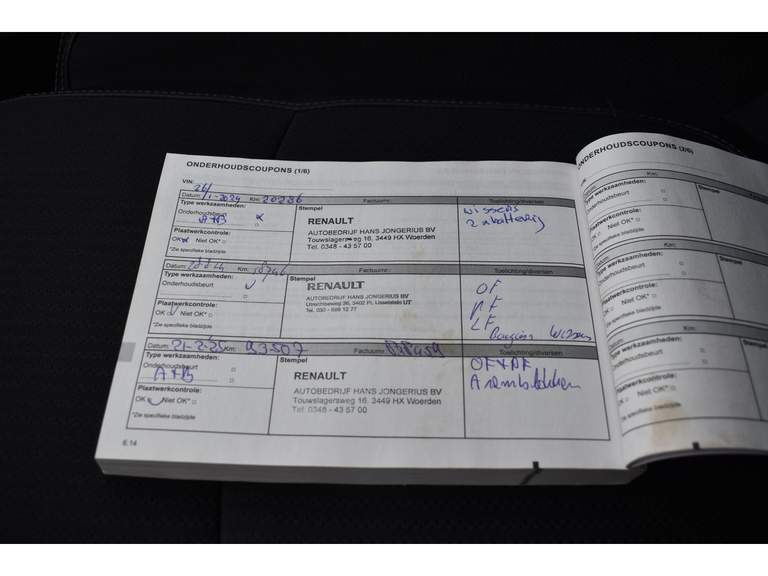 ONDERHOUDSCOUPONS (1/6)
VIN:
Datum: 26/1-2024 Km: 20286 Factuurnr.: Toelichting/diversen
Type werkzaamheden:
Onderhoudsbeurt
A+B
Plaatwerkcontrole:
OK Niet OK*
*Zie specifieke bladzijde
Stempel
RENAULT
AUTOBEDRIJF HANS JONGERIUS BV
Touwslagersweg 16, 3449 HX Woerden
Tel. 0348 - 43 57 00
Wissers
Datum: Km: Factuurnr.: Toelichting/diversen
Type werkzaamheden:
Onderhoudsbeurt
Plaatwerkcontrole:
OK Niet OK*
*Zie specifieke bladzijde
Stempel
RENAULT
AUTOBEDRIJF HANS JONGERIUS BV
Utrechtseweg 36, 3402 PL IJsselstein UT
OF
LF
Wissers
Datum: 21-2-25 Km: 93507 Factuurnr.: Toelichting/diversen
Type werkzaamheden:
Onderhoudsbeurt
A+B
Plaatwerkcontrole:
OK Niet OK*
*Zie specifieke bladzijde
Stempel
RENAULT
AUTOBEDRIJF HANS JONGERIUS BV
Touwslagersweg 16, 3449 HX Woerden
Tel. 0348 - 43 57 00
6.14
ONDERHOUDSCOUPONS (2/6)
VIN:
Datum: Km:
Type werkzaamheden:
Onderhoudsbeurt
Plaatwerkcontrole:
OK Niet OK*
*Zie specifieke bladzijde
Stempel
Datum: Km:
Type werkzaamheden:
Onderhoudsbeurt
Plaatwerkcontrole:
OK Niet OK*
*Zie specifieke bladzijde
Datum: Km:
Type werkzaamheden:
Onderhoudsbeurt
Plaatwerkcontrole:
OK Niet OK*
*Zie specifieke bladzijde